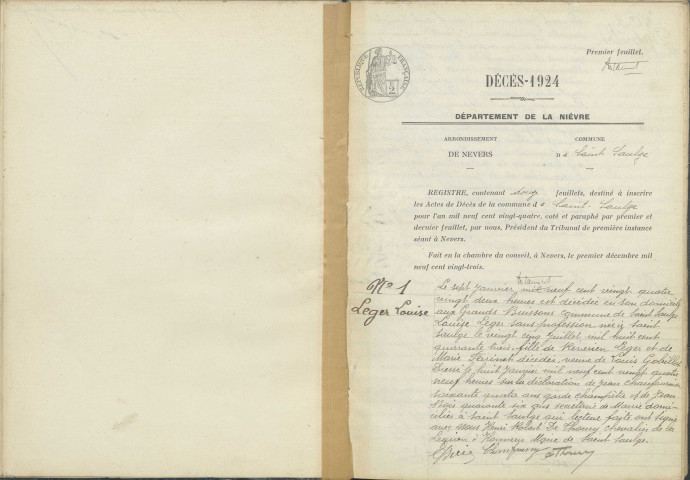 Premier feuillet.
RÉPUBLIQUE FRANÇAISE
2
DÉCÈS-1924
DÉPARTEMENT DE LA NIÈVRE
ARRONDISSEMENT
DE NEVERS
COMMUNE
D e Saint Saulge
REGISTRE, contenant douze feuillets, destiné à inscrire
les Actes de Décès de la commune de Saint-Saulge
pour l'an mil neuf cent vingt-quatre, coté et paraphé par premier et
dernier feuillet, par nous, Président du Tribunal de première instance
séant à Nevers.
Fait en la chambre du conseil, à Nevers, le premier décembre mil
neuf cent vingt-trois.
N° 1
Leger Louise
Le sept Janvier mil neuf cent vingt quatre
vingt deux heures est décédée en son domicile
aux Grands Buissons commune de Saint Saulge
Louise Leger sans profession née à Saint
Saulge le vingt cinq Juillet mil huit cent
quarante fille de Leger et de
Marie décédés, veuve de Louis
huit Janvier mil neuf cent vingt quatre
neuf heures sur la déclaration de Jean
soixante quatre ans garde champêtre et de Jean
quarante six ans secrétaire de Mairie domi-
ciliés à Saint Saulge qui lecture faite ont signé
avec nous Henri Robert De Thoury chevalier de la
Légion d'Honneur Maire de Saint Saulge.
De Thoury